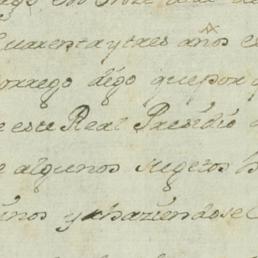 quarenta y tres años e
Borrego digo que por q
e este Real Presidio
e algunos sugetos h
inos y haziendose